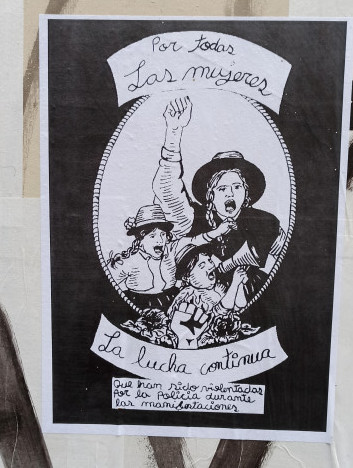 Por todas
Las mujeres
La lucha continua
Que han sido violentadas
Por la Policía durante
las manifestaciones